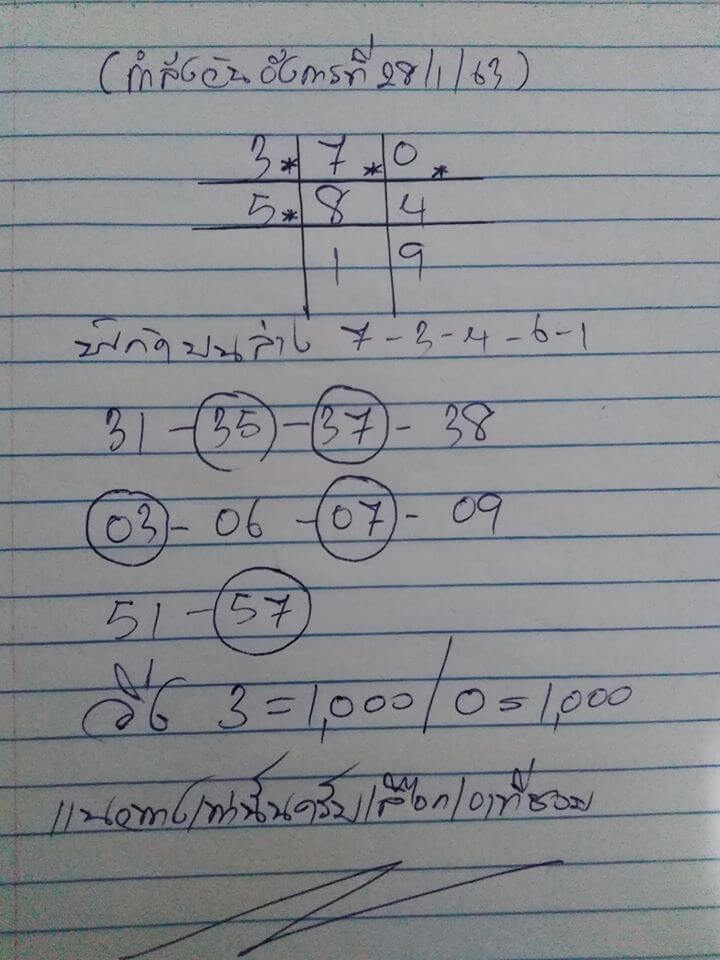 (กำลังวันอังคารที่ 28/1/63)
3* 7* 0*
5* 8 4
1 9
พิกัดบนล่าง 7-3-4-6-1
31-35-37-38
03-06-07-09
51-57
วิ่ง 3=1,000/0=1,000
แนวทางเท่านั้นครับเลือกเอาที่ชอบ